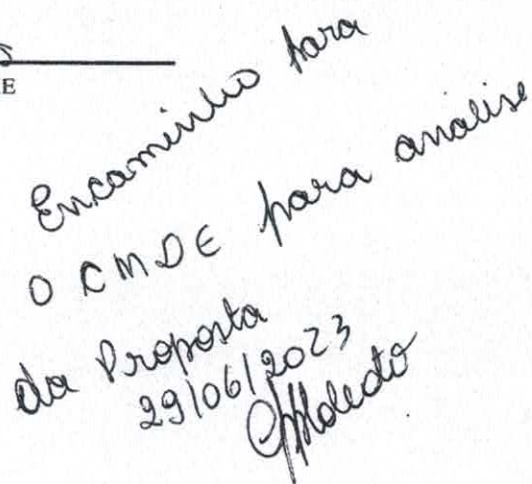 E
Encaminho para
O CMDE para analise
da Proposta
29/06/2023